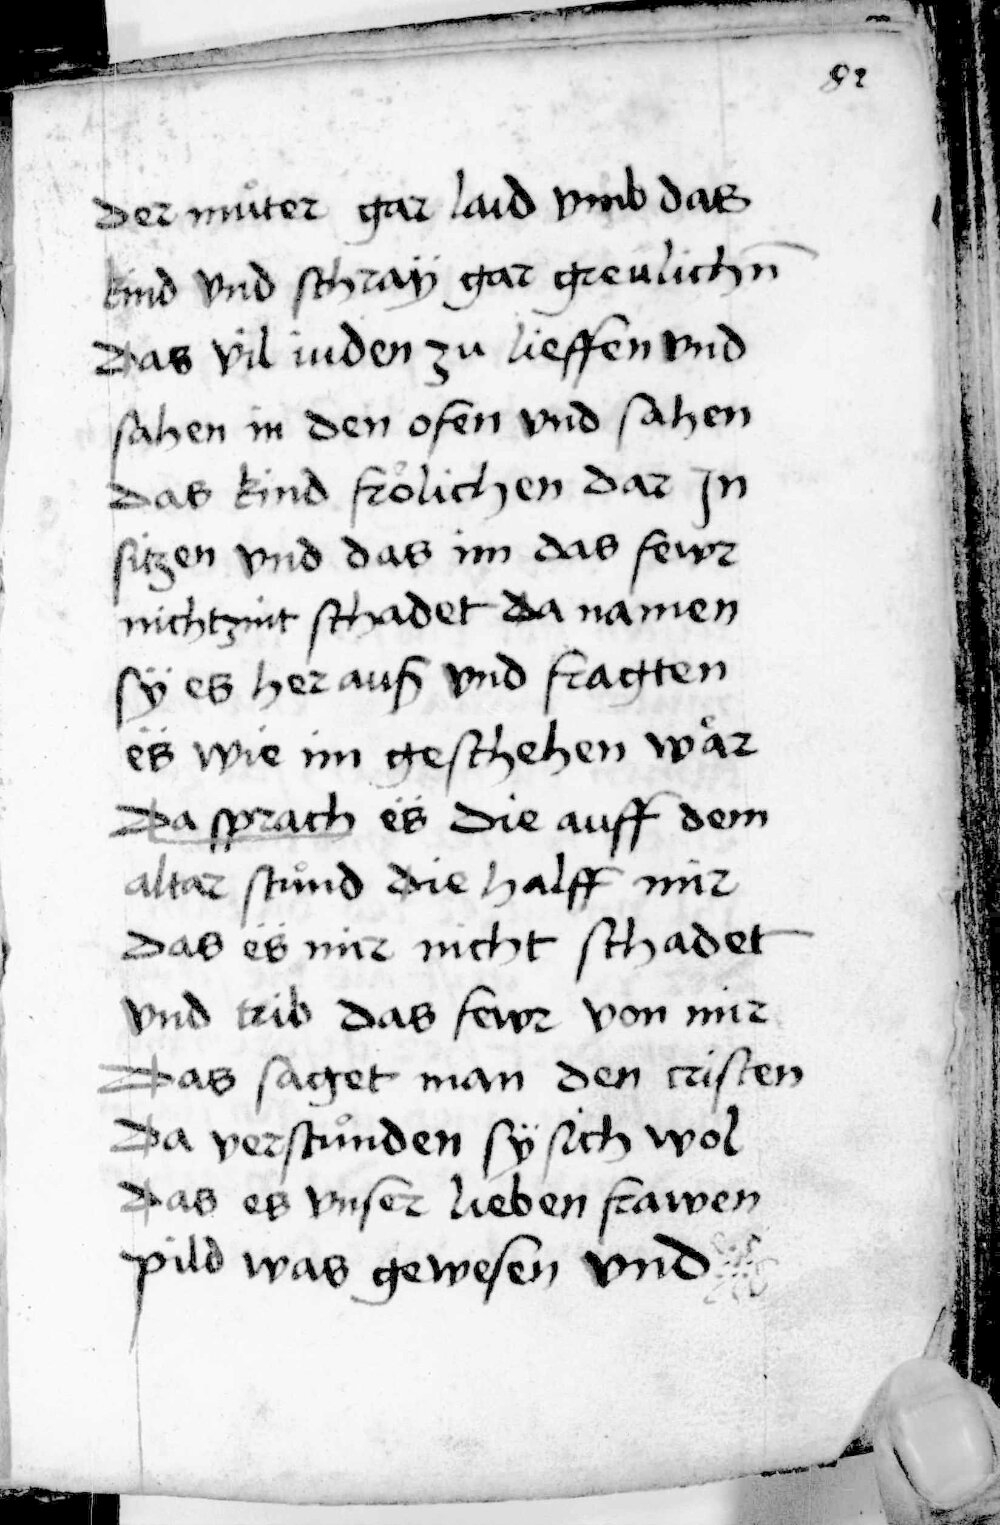 82
der můter gar laid vmb das
kind vnd schraÿ gar greulichn̄
Das vil iuden zu lieffen vnd
sahen in den ofen vnd sahen
das kind frőlichen dar Jn
sitzen vnd das im das fewr
nichtznit schadet Da namen
sÿ es her auß vnd fragten
es wie im geschehen wår
Da sprach es die auff dem
altar stůnd die halff mir
das es mir nicht schadet
vnd trib das fewr von mir
Das saget man den cristen
Da verstůnden sÿ sich wol
Das es vnser lieben frawen
pild was gewesen vnd